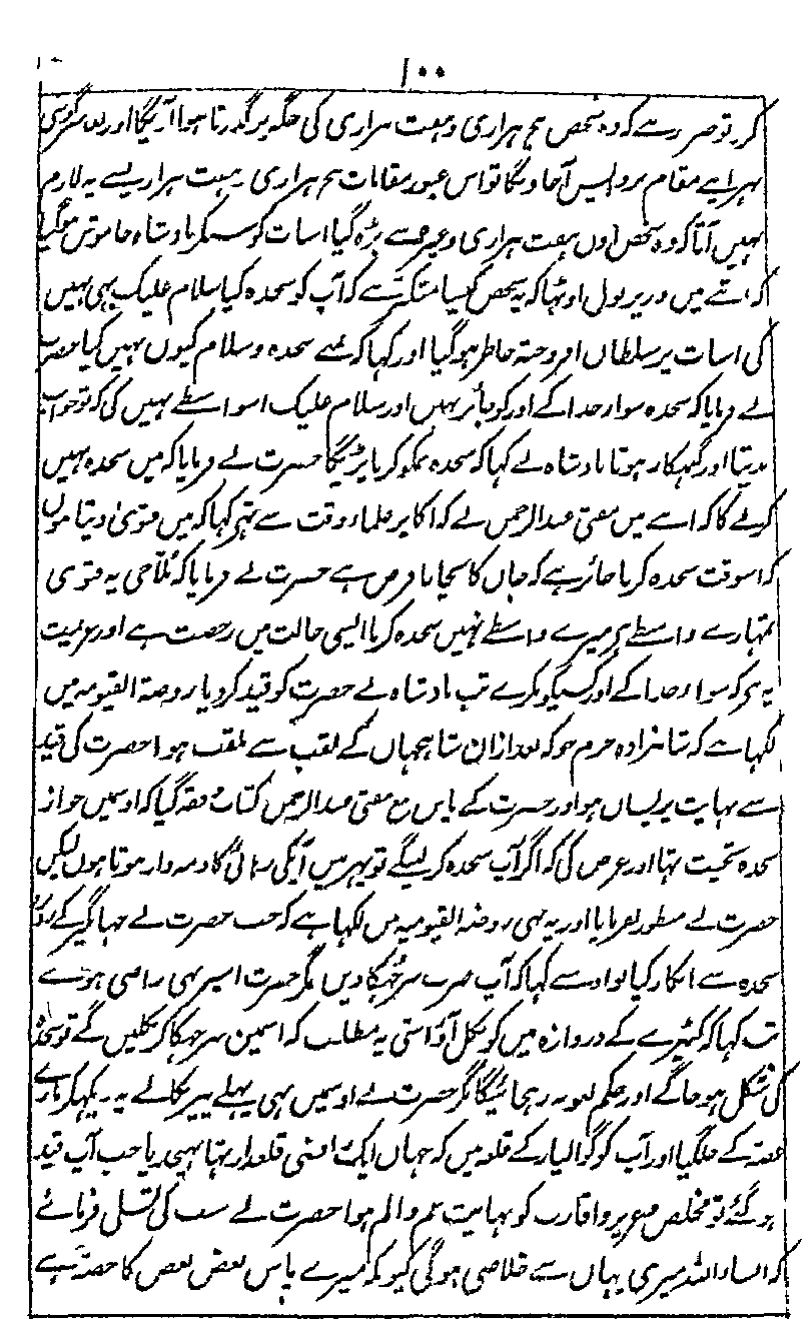 ۱۰۰
کر تو ضرور ہے کہ وہ شخص پنج ہزاری و ہفت ہزاری کی جگہ پر گذرتا ہوا آئیگا اور بعد سرگوشی
پھر اپنے مقام پر واپس آجاویگا تو اس عبور مقامات پنج ہزاری ہفت ہزاری سے یہ لازم
نہیں آتا کہ وہ شخص اون ہفت ہزاری وغیرہ سے بڑہ گیا اس بات کو سنکر بادشاہ خاموش ہوگیا
کہ اتنے میں وزیر بول اوٹھا کہ یہ شخص کیسا متکبر ہے کہ آپ کو سجدہ کیا سلام علیک بھی نہیں
کی اس بات پر سلطان افروختہ خاطر ہوگیا اور کہا کہ تمنے سجدہ و سلام کیوں نہیں کیا حضرت
نے فرمایا کہ سجدہ سوا خدا کے اور کو جائز نہیں اور سلام علیک اسواسطے نہیں کی کہ تو جواب
ندیتا اور گنہکار ہوتا بادشاہ نے کہا کہ سجدہ تمکو کرنا پڑیگا حضرت نے فرمایا کہ میں سجدہ نہیں
کرنے کا کہ اتنے میں مفتی عبدالرحمن نے کہ اکابر علماء وقت سے تھے کہا کہ میں فتویٰ دیتا ہوں
کہ اسوقت سجدہ کرنا جائز ہے کہ جان کا بچانا فرض ہے حضرت نے فرمایا کہ ملاجی یہ فتوی
تمہارے واسطے ہے میرے واسطے نہیں سجدہ کرنا ایسی حالت میں رخصت ہے اور عزیمت
یہ ہے کہ سوا خدا کے اور کسیکو نکرے تب بادشاہ نے حضرت کو قید کر دیا روضۃ القیومیہ میں
لکہا ہے کہ شاہزادہ خرم جو کہ بعد ازان شاہجہاں کے لقب سے ملقب ہوا حضرت کی قید
سے نہایت پریشاں ہوا اور حضرت کے پاس مع مفتی عبدالرحمن کتاب فقہ گیا کہ اوسمیں جواز
سجدہ تحیت تہا اور عرض کی کہ اگر آپ سجدہ کر لینگے تو پہر میں آپکی رہائی کا ذمہ دار ہوتا ہوں لیکن
حضرت نے منظور نفرمایا اور یہ بھی روضۃ القیومیہ میں لکہا ہے کہ جب حضرت نے جہانگیر کے روبرو
سجدہ سے انکار کیا تو اوسنے کہا کہ آپ صرف سر جھکا دیں مگر حضرت اسپر بھی راضی نہوئے
تب کہا کہ کٹہرے کے دروازہ میں کو نکل آؤ اسی یہ مطلب کہ اسمین سر جھکا کر نکلیں گے تو سجدہ
کی شکل ہو جاگے اور حکم لغو نہ رہجائیگا مگر حضرت نے اوسمیں بھی پہلے پیر نکالے یہ دیکہکر مارے
غصہ کے جلگیا اور آپ کو گوالیار کے قلعہ میں کہ جہاں ایک افسر قلعدار تہا بھیجدیا جب آپ قید
ہوگئے تو مخلص و عزیز و اقارب کو نہایت غم و الم ہوا حضرت نے سب کی تسلی فرمائے
کہ انشاء اللہ میری یہاں سے خلاصی ہوگی کیونکہ میرے پاس بعض بعض کا حصہ ہے